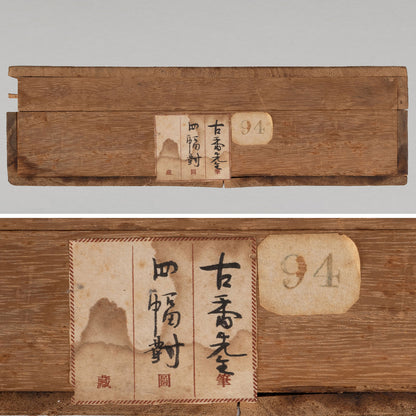 94
古香先生筆
四幅對圖
藏
94
古香先生筆
四幅對圖
藏